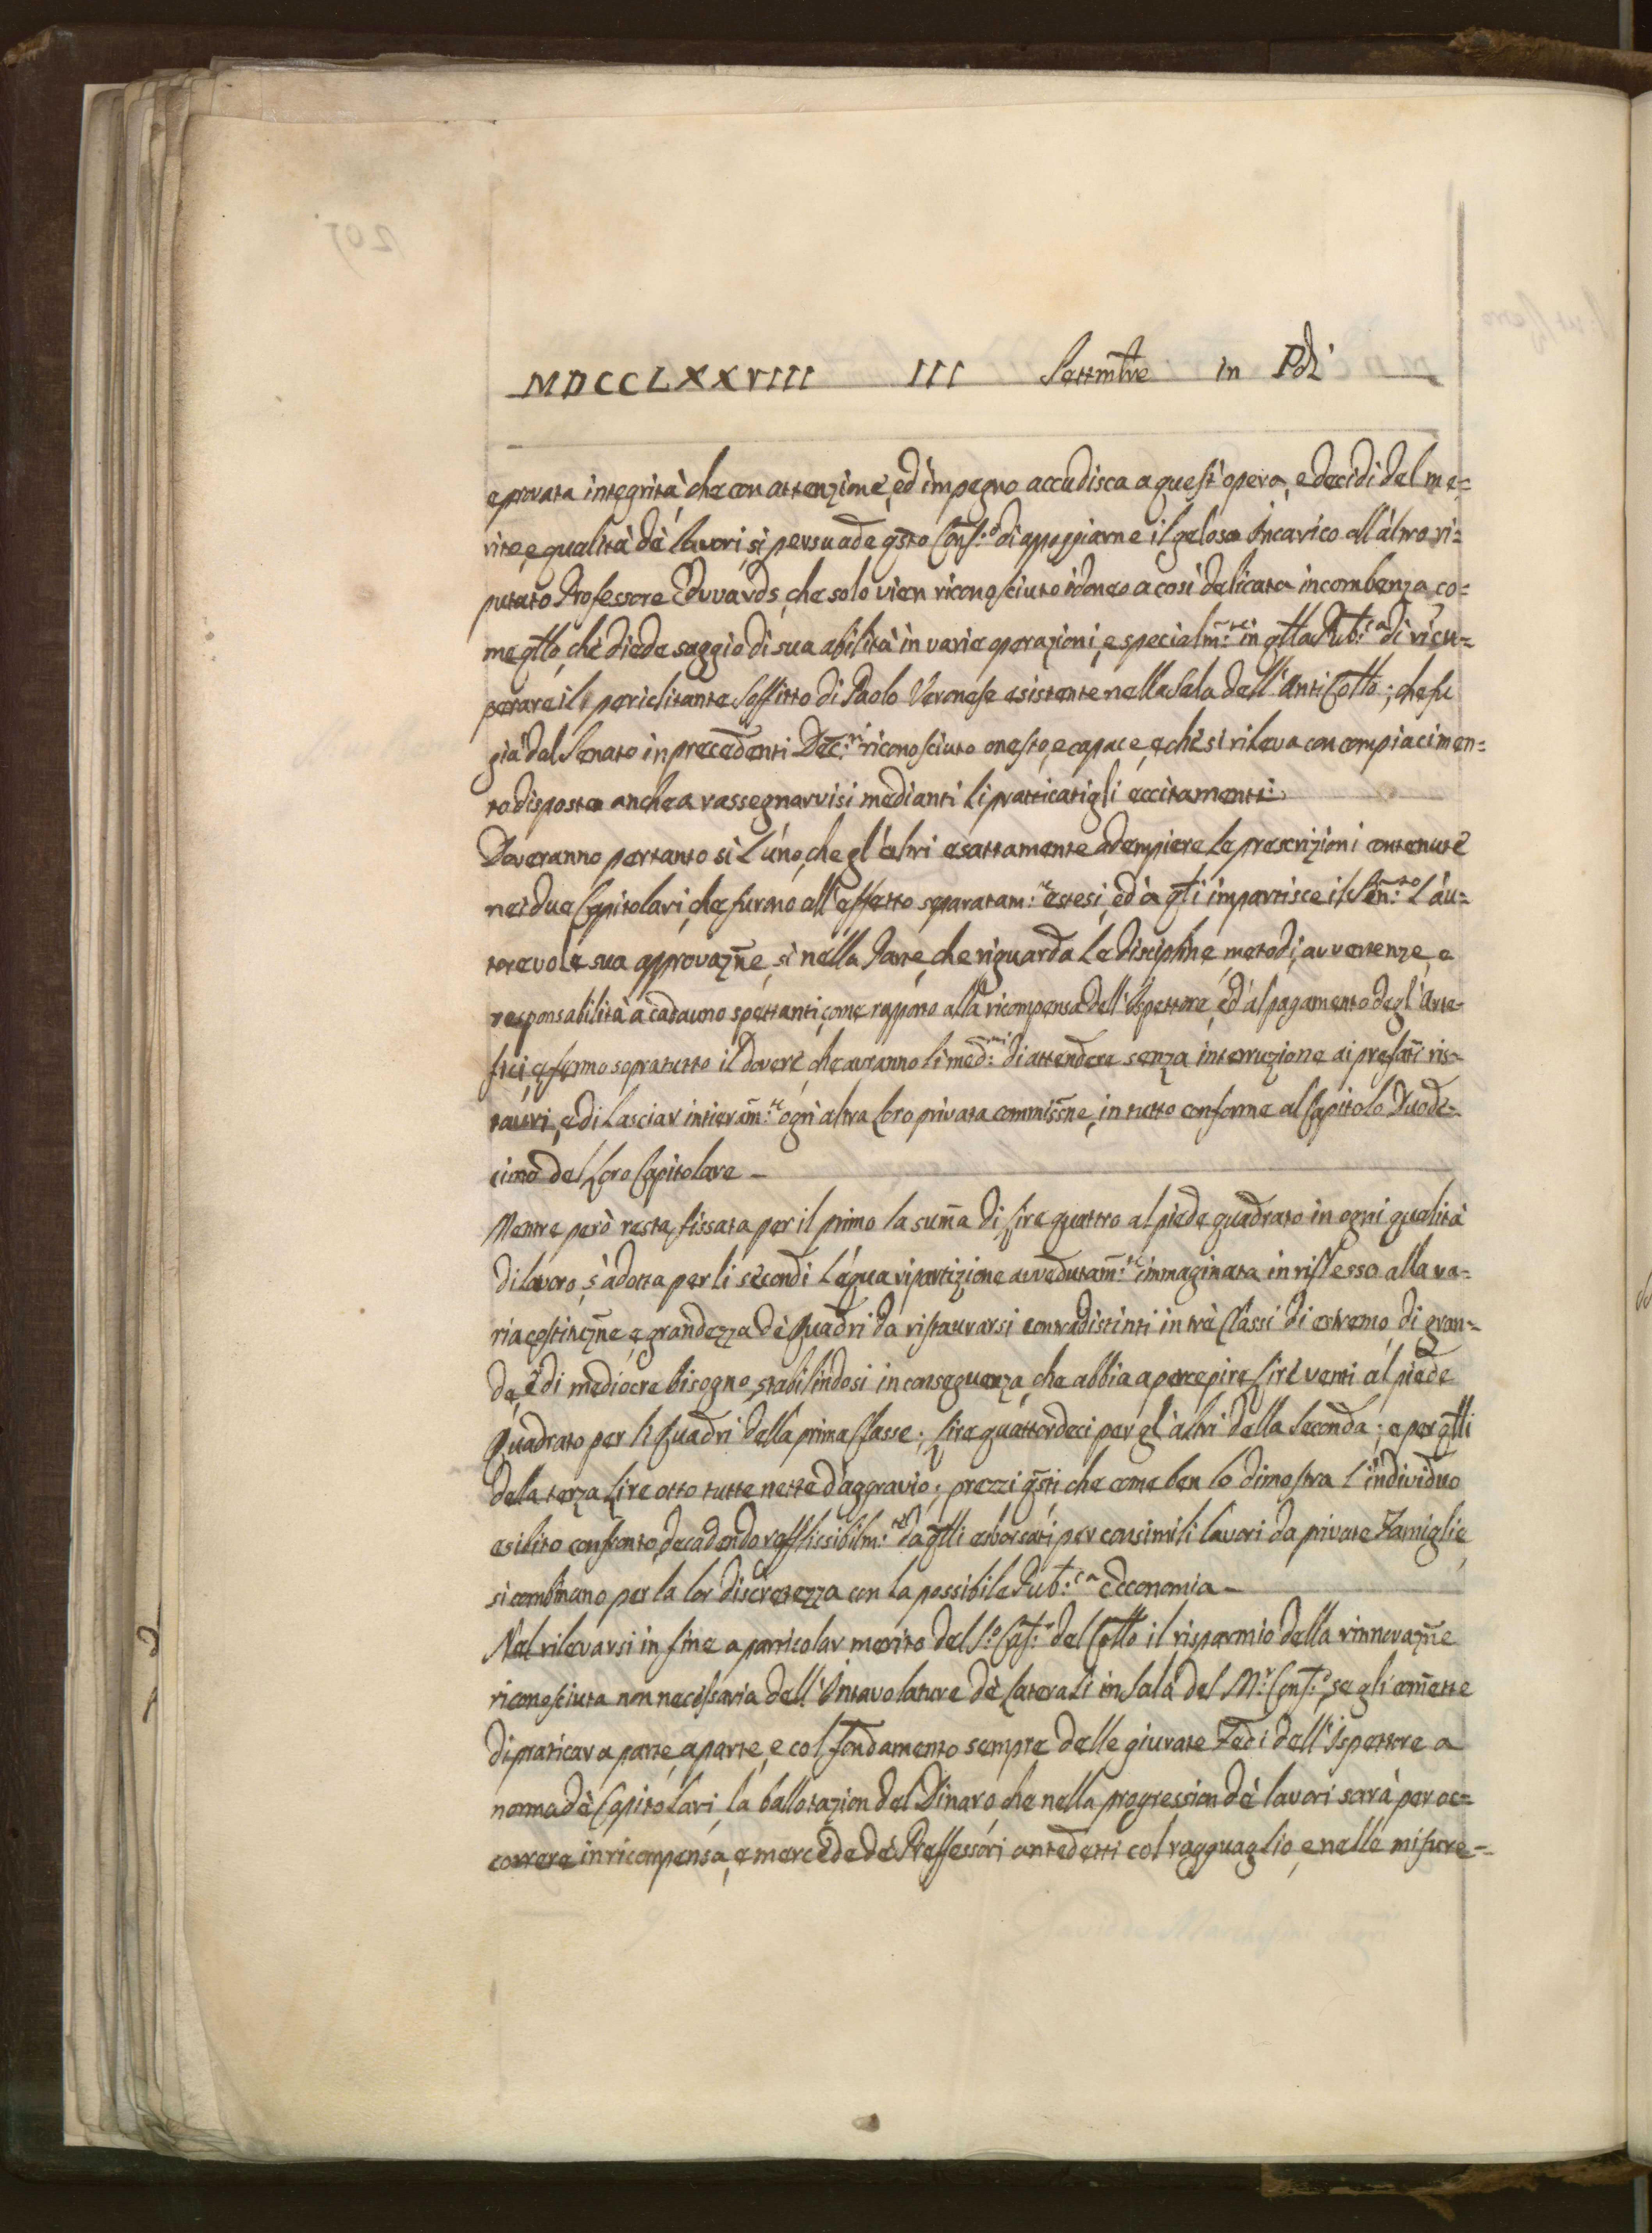 MDCCLXXVIII III Settmbre in Pdi
e provata integrità, che con attenzione, ed impegno accudisca a quest'opera, e decidi del me=
rito, e qualità de' lavori, si persuade qsto Cons:o di appoggiarne il geloso Incarico all'altro ri=
putato Professore Edwards, che solo vien riconosciuto idoneo a così delicata incombenza, co=
me qllo, che diede saggio di sua abilità in varie operazioni, e specialm:te in qlla Pub:ca di ricu=
perare il periclitante Soffitto di Paolo Veronese esistente nella Sala dell'Anti Collo; che fu
già dal Senato in precedenti Dec:ti riconosciuto onesto, e capace, e che si rileva con compiacimen=
to disposto anche a rassegnarvisi medianti li pratticatigli eccitamenti.
Doveranno pertanto sì l'uno, che gl'altri esattamente adempiere le prescrizioni contenute
nei due Capitolari, che furono all'effetto separatam:te estesi, ed a qli impartisce il Sen:to l'au=
torevole sua approvazne, sì nella Parte, che riguarda le discipline, metodi, avvertenze, e
responsabilità a cadauno spettanti, come rapporto alla ricompensa dell'Ispettore, ed al pagamento degl'Arte=
fici, e fermo sopratutto il dovere, che avranno li med:mi di attendere senza interruzione ai prefati ris=
tauri, e di lasciar intieram:te ogni altra loro privata commissne, in tutto conforme al Capitolo Duode=
cimo del loro Capitolare
Mentre però resta fissata per il primo la suma di lire quattro al piede quadrato in ogni qualità
di lavoro, s'adotta per li secondi l'equa ripartizione avvedutam:te immaginata in riflesso alla va=
ria costituzne, e grandezza de' quadri da ristaurarsi contradistinti in trè Classi di estremo, di gran=
de, e di mediocre bisogno, stabilindosi in conseguenza, che abbia a percepire lire venti al piede
quadrato per li quadri della prima Classe; lire quattordeci per gl'altri della Seconda; e per qlli
dela terza lire otto tutte nette d'aggravio; prezzi qsti che come ben lo dimostra l'individuo
esibito confronto, decadendo rifflessibilm:te da qlli esborsati per consimili lavori da private Famiglie,
si combinano per la lor discretezza con la possibile Pub:ca Economia
Nel rilevarsi in fine a particolar merito del S:o Cas:r del Collo il risparmio della rinnovazne
riconosciuta non necessaria dell'Intavolature de' laterali in Sala del M:r Cons:o, se gli comette
di praticar a parte, a parte, e col fondamento sempre delle giurate Fedi dell'Ispettore a
norma de' Capitolari, la ballotazion del Dinaro che nella progression de' lavori sarà per oc=
correre in ricompensa, e mercede de' Proffessori antedetti col ragguaglio, e nelle misure=